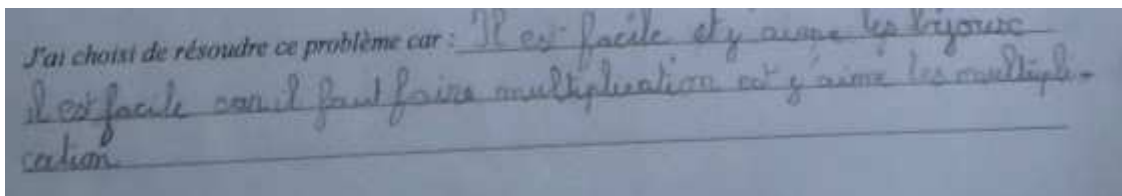 J'ai choisi de résoudre ce problème car : Il est facile et y aime les bijoux
il est facile car il faut faire multiplication est y'aime les multipli-
cation